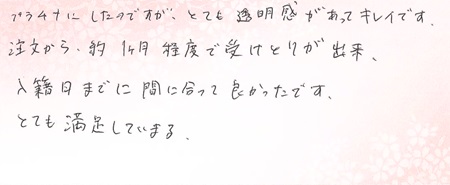 プラチナにしたのですが、とても透明感があってキレイです.
注文から、約1ヶ月程度で受けとりが出来、
入籍日までに間に合って良かったです。
とても満足していまる.